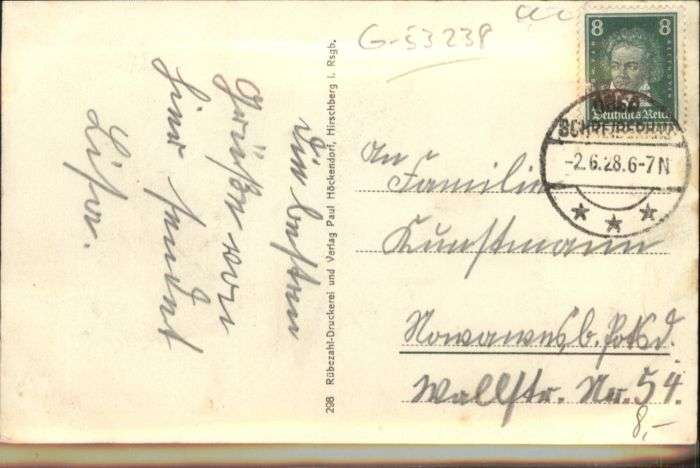 Die besten
Grüße von
hier sendet
Lisa.
298 Rübezahl-Druckerei und Verlag Paul Höckendorf, Hirschberg i. Rsgb.
G-53238
8 8
Deutsches Reich
OBER
SCHREIBERHAU
-2.6.28.6-7N
An
Familie
Kunstmann
Nowawes b. Potsd.
Wallstr. Nr. 54.
8,-